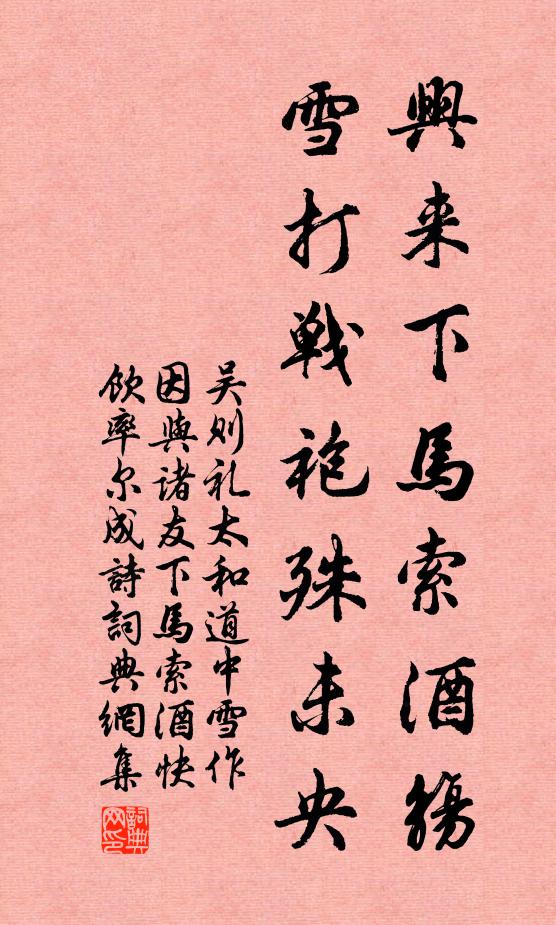 興来下馬索酒觴
雪打戰袍殊未央
吴则礼太和道中雪作
因與诸友下馬索酒快
饮率尔成詩詞典網集
詞典网印